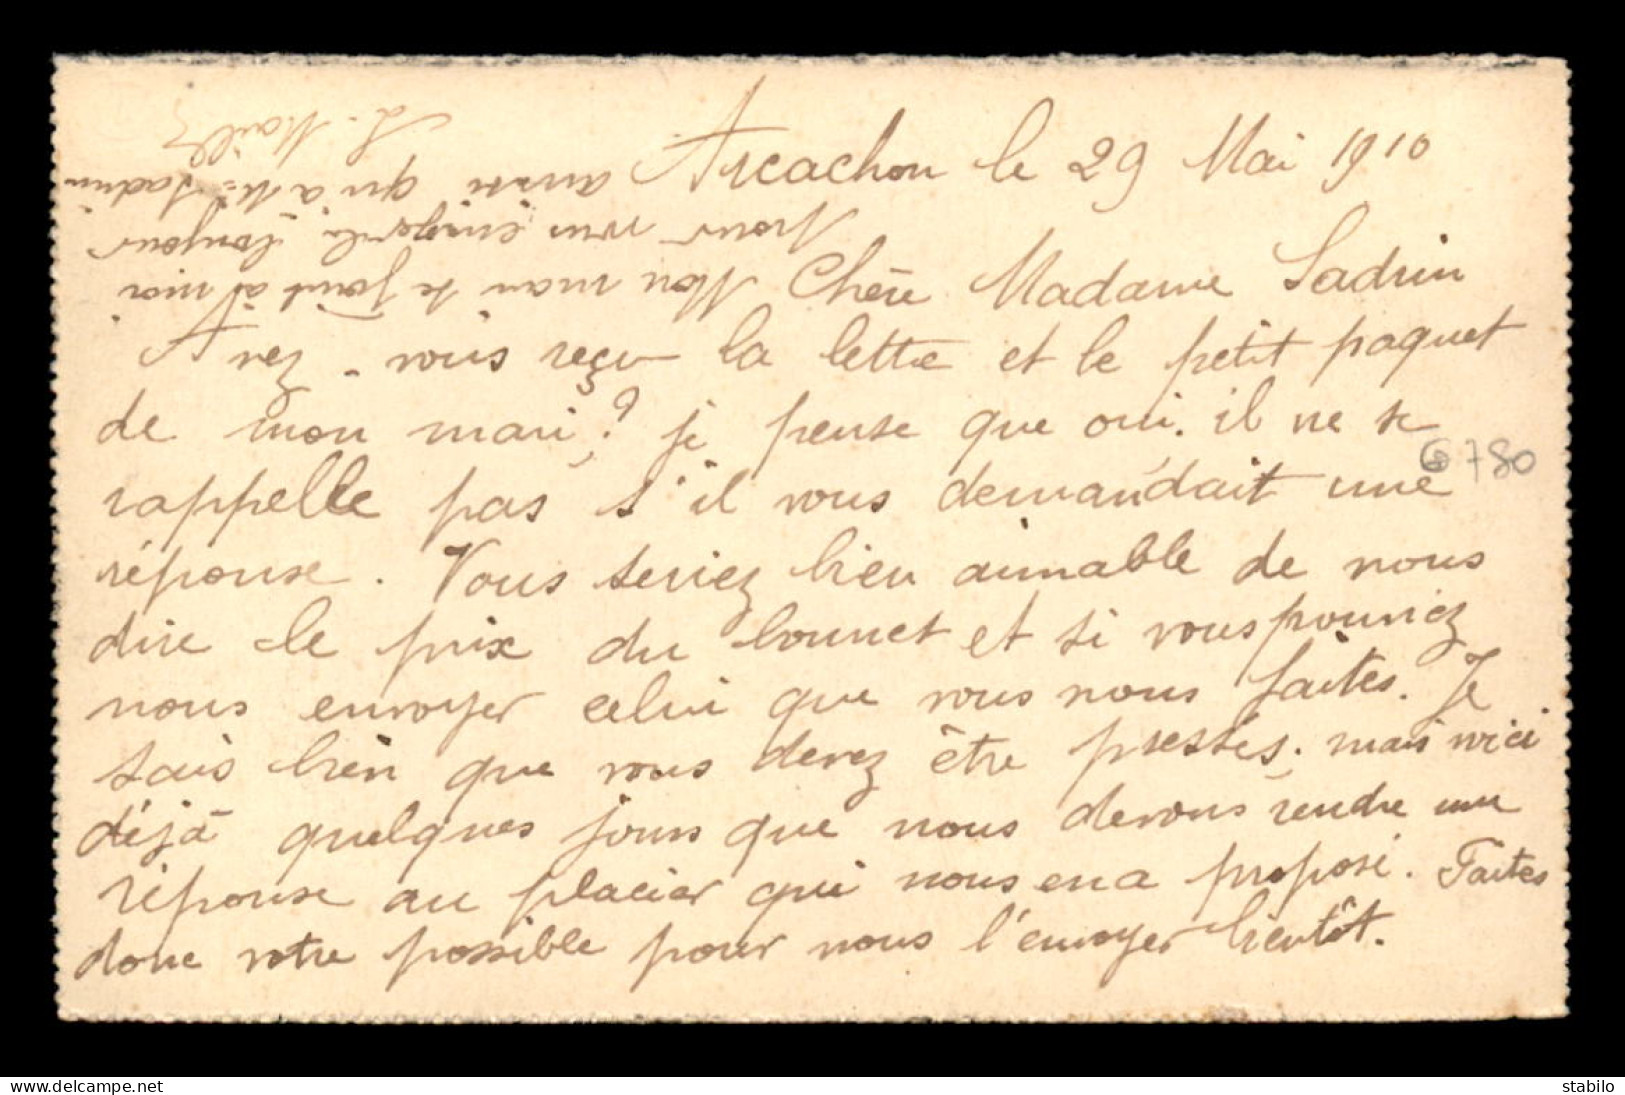 Arcachon le 29 Mai 1910
Chère Madame Sadrin
Avez-vous reçu la lettre et le petit paquet
de mon mari? je pense que oui. il ne se
rappelle pas s'il vous demandait une
réponse. Vous seriez bien aimable de nous
dire le prix du bonnet et si vous pourriez
nous envoyer celui que vous nous faites. Je
sais bien que vous devez être pressés. mais voici
déjà quelques jours que nous devons rendre une
réponse au placier qui nous en a proposé. Faites
donc votre possible pour nous l'envoyer bientôt.
Mon mari se joint à moi
pour vous toujours
ainsi qu'a Mr Sadrin
6780
delcampe.net
stabilo